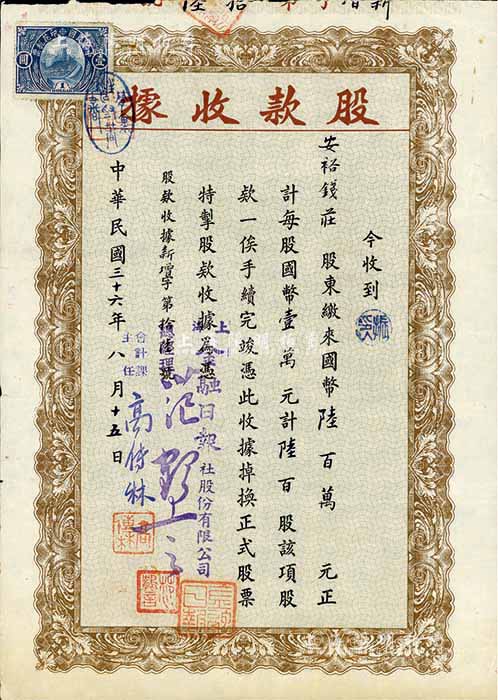 股款收據
今收到
安裕錢莊 股東繳來國幣陸百萬 元正
計每股國幣壹萬元計陸百股該項股
欵一俟手續完竣憑此收據掉換正式股票
特掣股欵收據爲憑
上海金融日報社股份有限公司
股欵收據新增字第拾陸號
總經理
會計課主任 高傳林
中華民國三十六年八月十五日